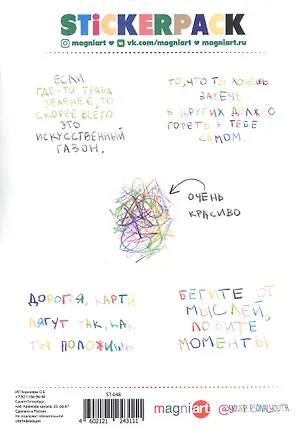 STiCKERPACK
magniart vk.com/magniart magniart.ru
ЕСЛИ
ГДЕ-ТО ТРАВА
ЗЕЛЕНЕЕ, ТО
СКОРЕЕ ВСЕГО
ЭТО
ИСКУССТВЕННЫЙ
ГАЗОН.
ТО, ЧТО ТЫ ХОЧЕШЬ
ЗАЖЕЧЬ
В ДРУГИХ ДОЛЖНО
ГОРЕТЬ В ТЕБЕ
САМОМ.
ОЧЕНЬ
КРАСИВО
ДОРОГАЯ, КАРТЫ
ЛЯГУТ ТАК, КАК
ТЫ ПОЛОЖИШЬ
БЕГИТЕ ОТ
МЫСЛЕЙ,
ЛОВИТЕ
МОМЕНТЫ
Санкт-Петербург,
Сделано в России
Не подлежит обязательной
сертификации
ST-048
4 602121 243111
magniart @YOURPERSONALYOUTH